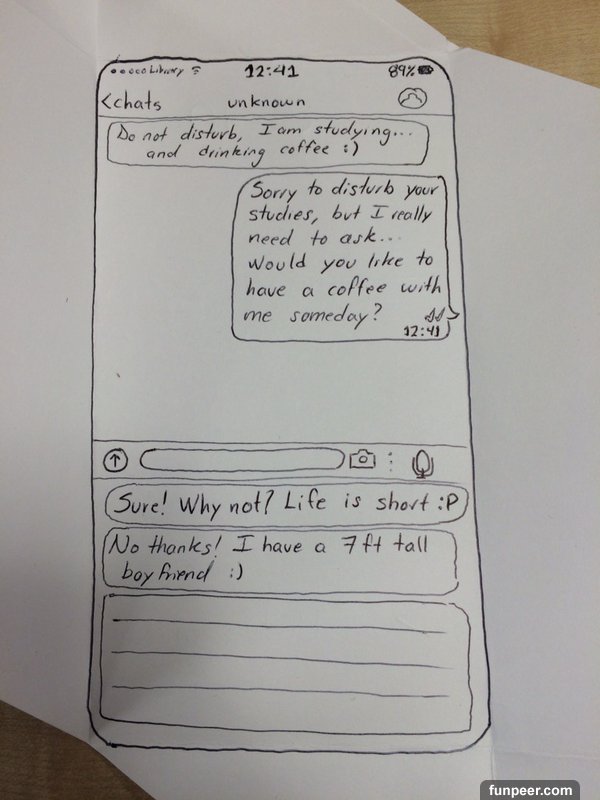 Library 12:41 89%
<chats unknown
Do not disturb, I am studying...
and drinking coffee :)
Sorry to disturb your
studies, but I really
need to ask...
Would you like to
have a coffee with
me someday?
12:41
Sure! Why not? Life is short :P
No thanks! I have a 7ft tall
boyfriend :)
funpeer.com